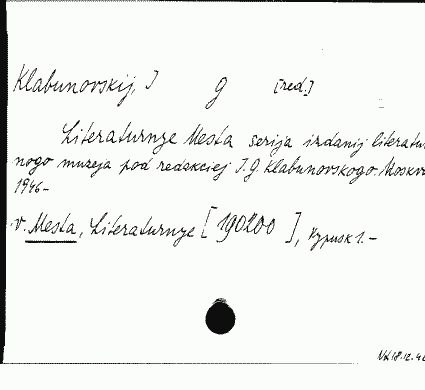 Klabunovskij, I G [red.]
Literaturnye Mesta serija izdanij literatur
nogo muzeja pod redakciej I.G. Klabunovskogo. Moskva
1946-
v. Mesta, Literaturnye [190200], Vypusk 1.-
18.12.46